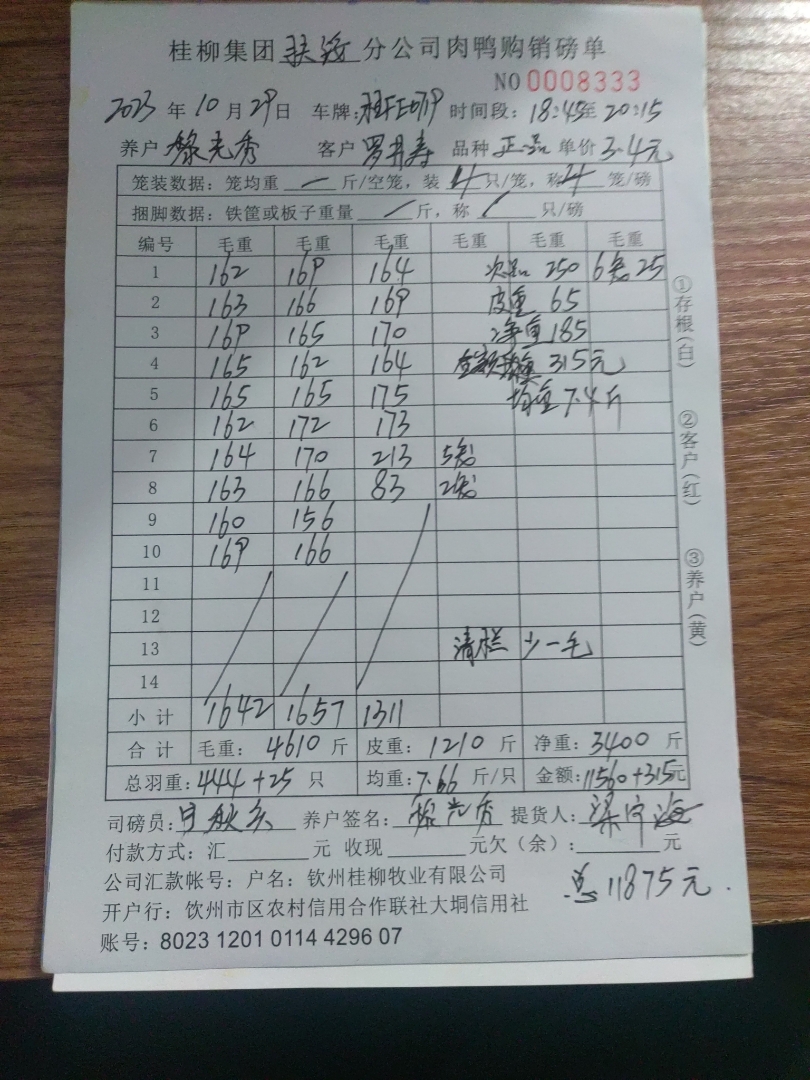 桂柳集团扶绥分公司肉鸭购销磅单
NO 0008333
2023 年 10 月 29 日 车牌: 时间段: 18:45至 20:15
养户 黎光秀 客户 罗丹寿 品种 正品 单价 3.4元
笼装数据: 笼均重 一 斤/空笼, 装 4 只/笼, 称 4 笼/磅
捆脚数据: 铁筐或板子重量 / 斤, 称 / 只/磅
编号 毛重 毛重 毛重 毛重 毛重 毛重
1 162 169 164 次品 250 6笼 25
2 163 166 169 皮重 65
3 169 165 170 净重 185
4 165 162 164 315元
5 165 165 175 均重 7.4斤
6 162 172 173
7 164 170 213 5笼
8 163 166 83 2笼
9 160 156
10 169 166
11
12
13 清栏 少一毛
14
小计 1642 1657 1311
合计 毛重: 4610 斤 皮重: 1210 斤 净重: 3400 斤
总羽重: 444+25 只 均重: 7.66 斤/只 金额: 11560+315元
司磅员: 养户签名: 黎光秀 提货人: 梁守海
付款方式: 汇 元 收现 元欠(余): 元
公司汇款帐号: 户名: 钦州桂柳牧业有限公司
总 11875元.
开户行: 钦州市区农村信用合作联社大垌信用社
账号: 8023 1201 0114 4296 07
①存根(白)
②客户(红)
③养户(黄)